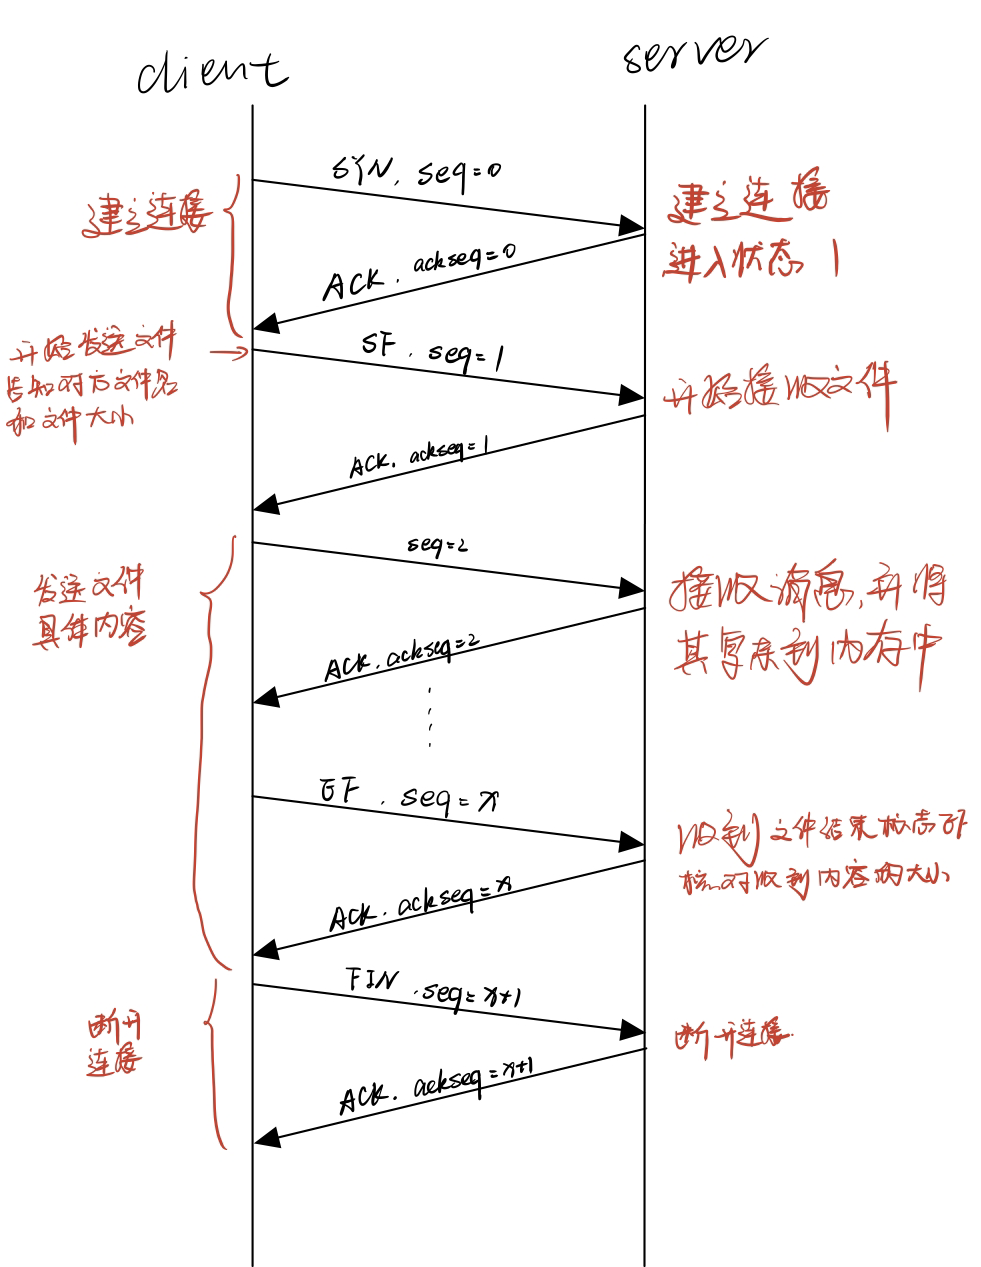 client
server
SYN. seq=0
建立连接
建立连接
进入状态1
ACK. ackseq=0
开始发送文件
告知对方文件名
和文件大小
SF. seq=1
开始接收文件
ACK. ackseq=1
seq=2
发送文件
具体内容
接收消息,并将
其复杂到内存中
ACK. ackseq=2
EF. seq=x
收到文件结束标志EF
核对收到内容的大小
ACK. ackseq=x
FIN. seq=x+1
断开
连接
断开连接.
ACK. ackseq=x+1